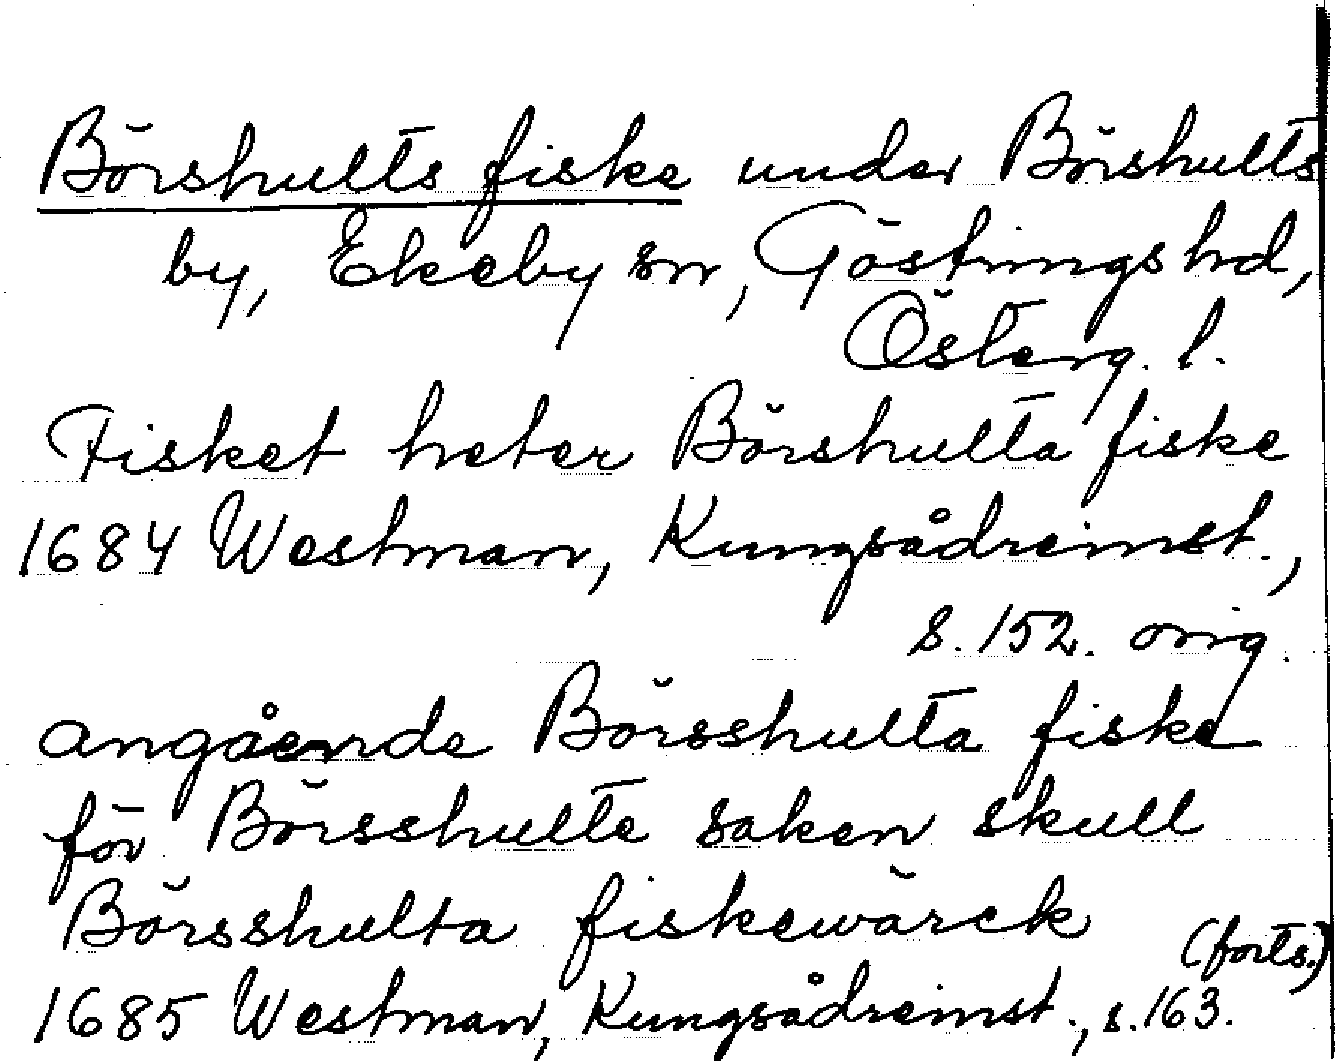 Börshults fiske under Börshults
by, Ekeby sn, Göstrings hd,
Österg. l.
Fisket heter Börshulta fiske
1684 Westman, Kungsådreinst.,
s. 152. orig.
angående Börsshulta fiske
för Börsshulte saken skull
Börsshulta fiskewärck
(forts.)
1685 Westman, Kungsådreinst., s. 163.